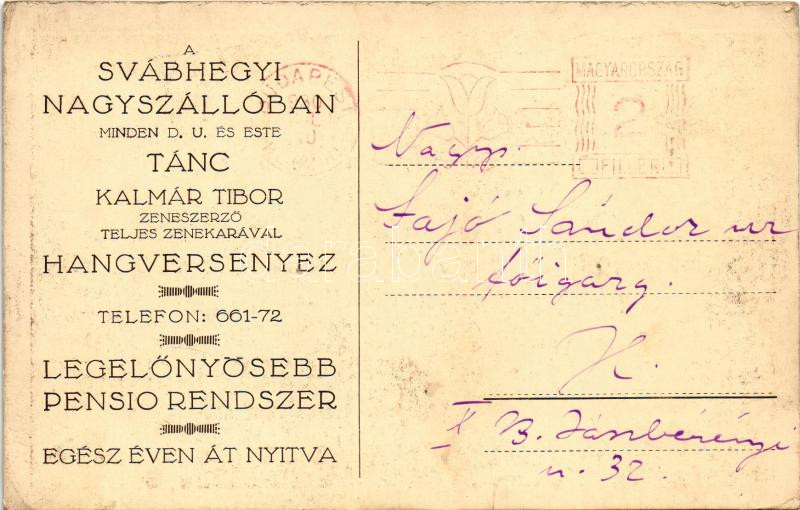 A
SVÁBHEGYI
NAGYSZÁLLÓBAN
MINDEN D. U. ÉS ESTE
TÁNC
KALMÁR TIBOR
ZENESZERZŐ
TELJES ZENEKARÁVAL
HANGVERSENYEZ
TELEFON: 661-72
LEGELŐNYÖSEBB
PENSIO RENDSZER
EGÉSZ ÉVEN ÁT NYITVA
BUDAPEST
MAGYARORSZÁG
2
FILLÉR
Nagys.
Sajó Sándor ur
főigazg.
H.
X B. Jászberényi
u. 32.
darabanth